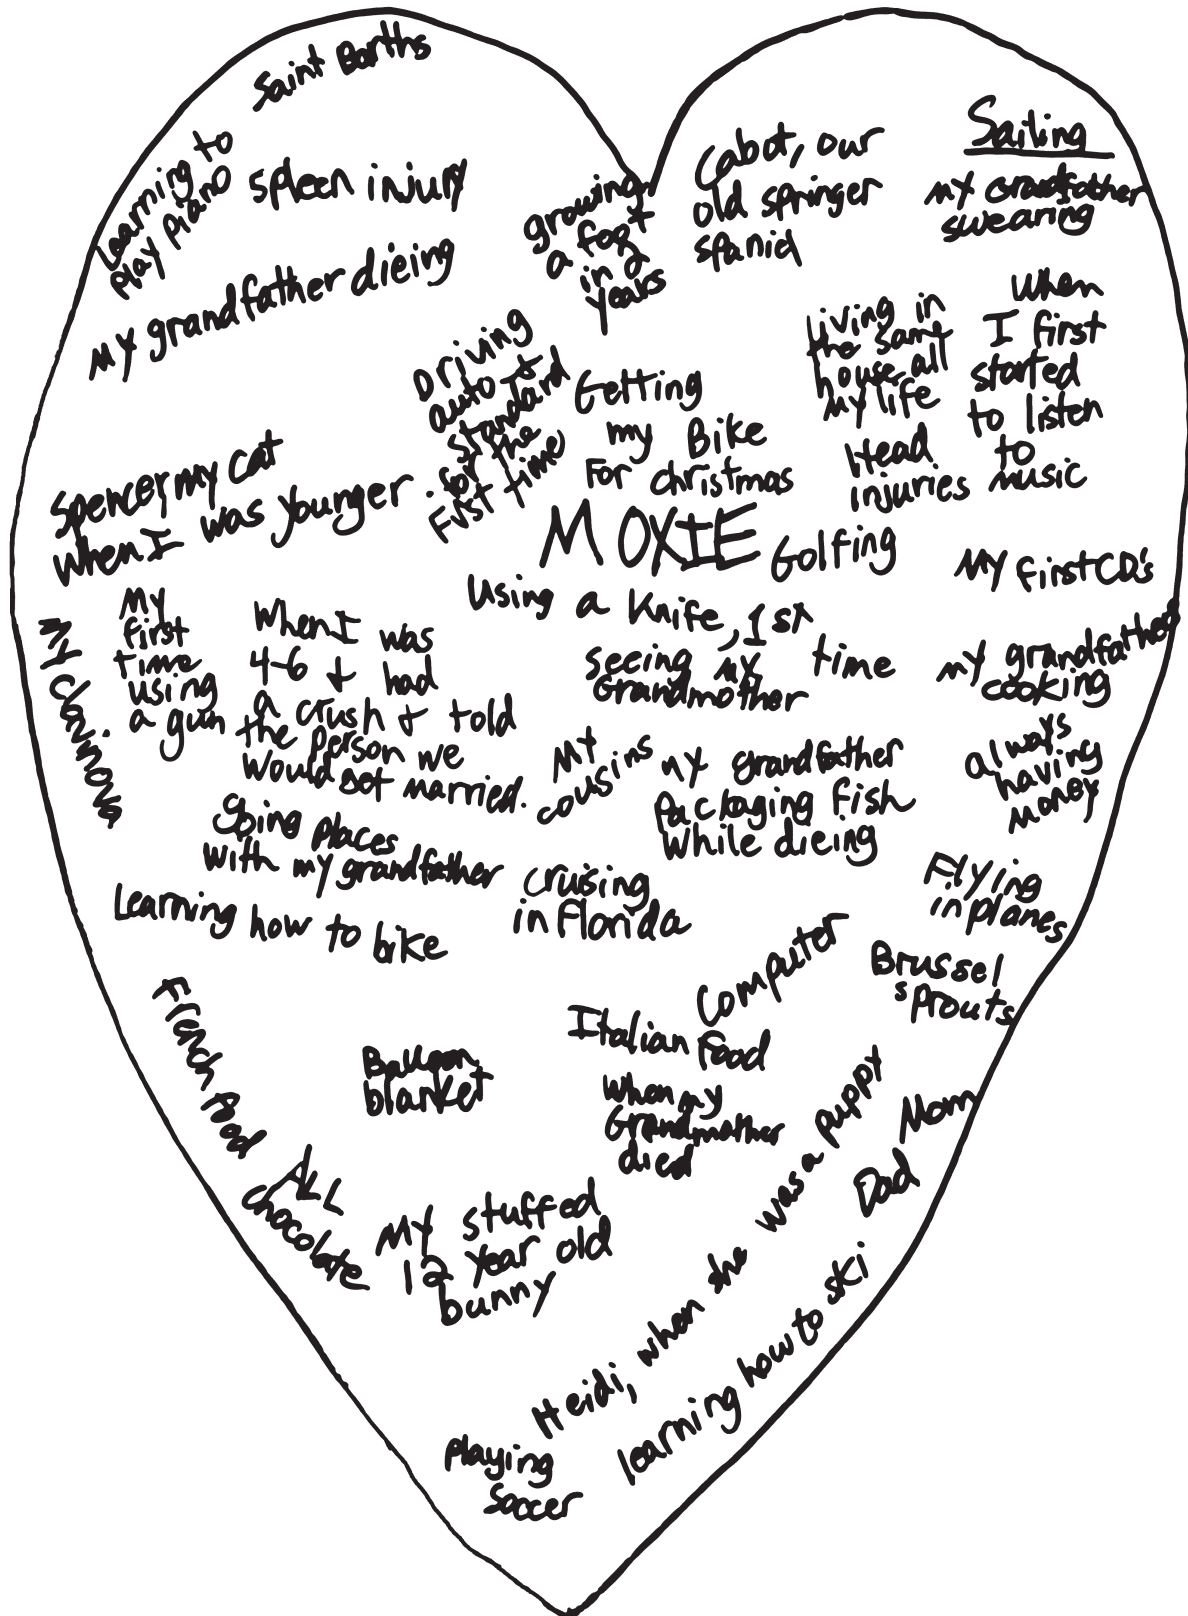 Saint Barths
Learning to
play piano
spleen injury
my grandfather dieing
growing
a foot
in 2
years
Cabot, our
old springer
spaniel
Sailing
my grandfather
swearing
Driving
auto &
standard
for the
First time
Getting
my Bike
For christmas
Living in
the same
house all
my life
Head
injuries
When
I first
started
to listen
to
music
Spencer, my cat
when I was younger.
MOXIE
Golfing
My first CD's
Using a Knife, 1st
time
My
first
time
using
a gun
When I was
4-6 & had
a crush & told
the person we
would get married.
seeing my
Grandmother
my grandfather
cooking
My
cousins
my grandfather
packaging fish
while dieing
always
having
money
going places
with my grandfather
cruising
in Florida
Flying
in planes
Learning how to bike
Computer
Brussel
sprouts
French food
Balloon
blanket
Italian food
when my
Grandmother
died
Mom
Dad
ALL
chocolate
My stuffed
12 year old
bunny
Heidi, when she was a puppy
learning how to ski
playing
soccer